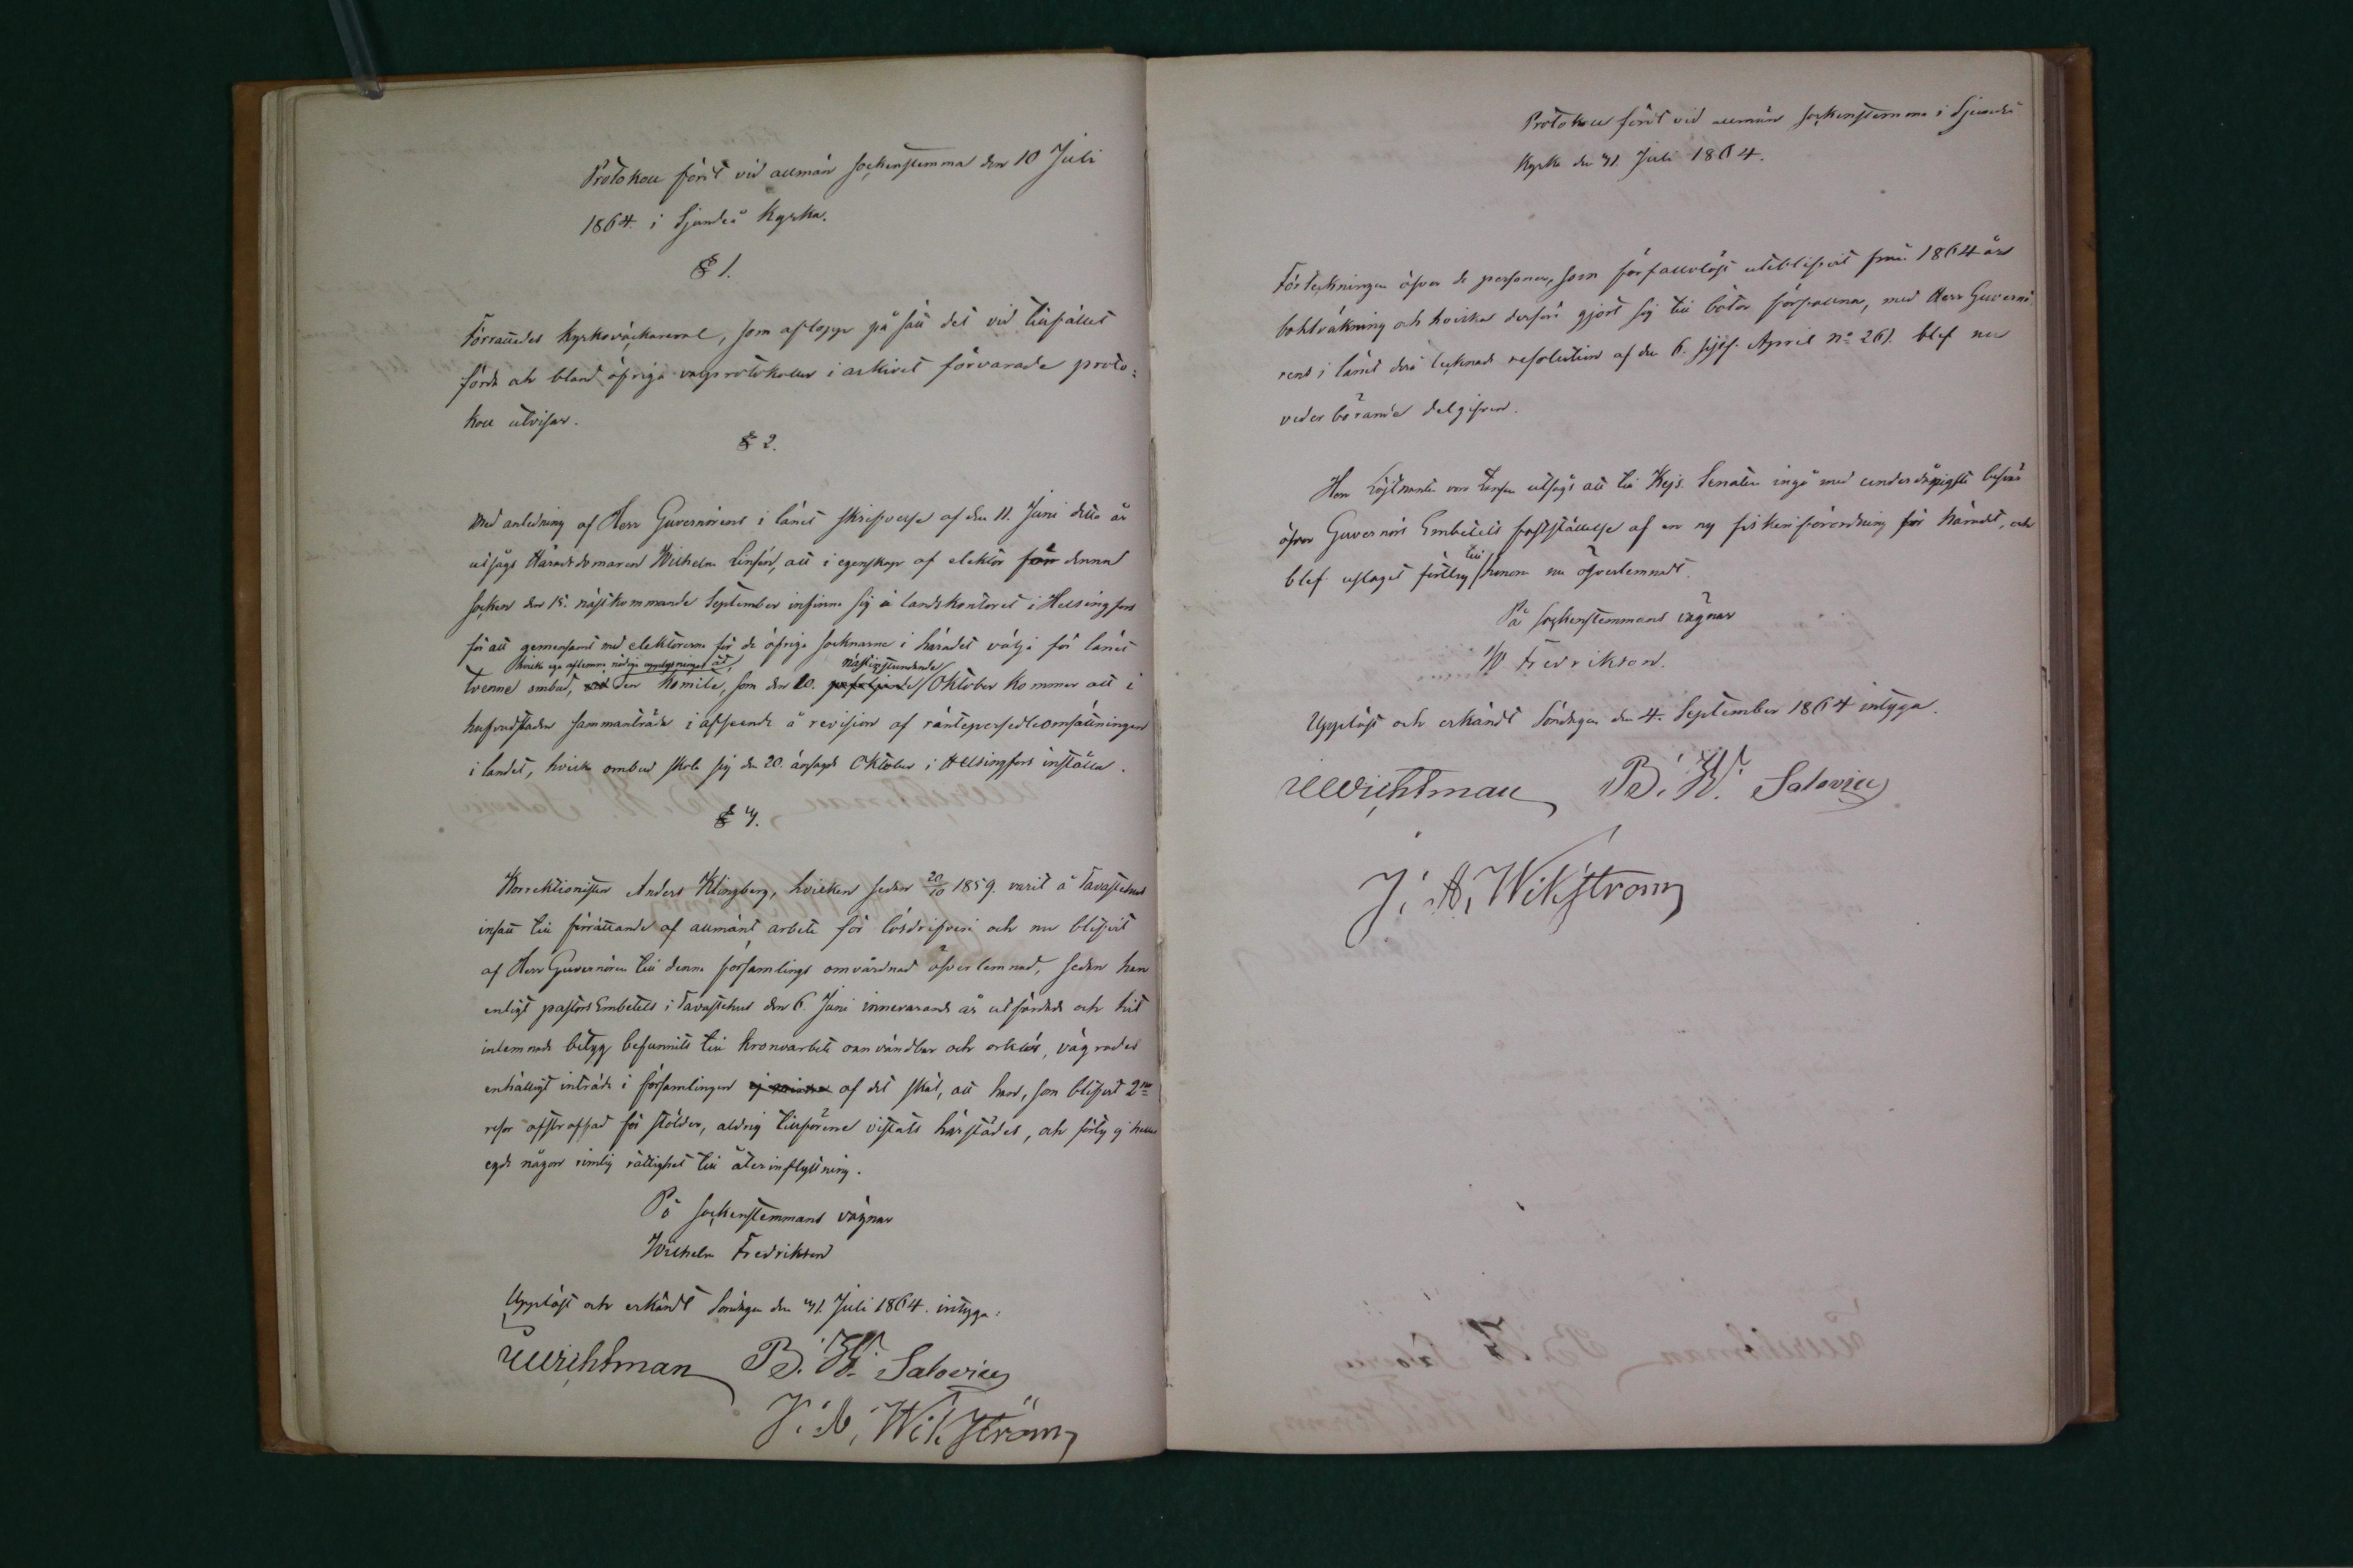 Protokoll fördt vid allmän sockenstemma den 10 Juli
1864 i Sjundeå Kyrka.
§ 1.
Förrättades kyrkoväktareval, som aflopp på sätt det vid tillfället
förda och bland öfriga valprotokoller i arkivet förvarade proto-
koll utvisar.
§ 2.
Med anledning af Herr Guvernörens i länet skrifvelse af den 11. Juni detta år
utsågs Häradsdomaren Wilhelm Linsén, att i egenskap af elektor för denna
socken den 15. nästkommande September infinna sig å landskontoret i Helsingfors
för att gemensamt med elektorerna för de öfriga socknarne i häradet välja för länet
hvilka ega aflemna nödiga upplysningar åt
nästinstundande
tvenne ombud, vid den Komité, som den 20. Oktober kommer att i
hufvudstaden sammanträda i afseende å revision af räntepersedleomsättningen
i landet, hvilka ombud skola sig den 20. änsagde Oktober i Helsingfors inställa.
§ 3.
Korrektionisten Anders Klingberg, hvilken sedan 20/10 1859 varit å Tavastehus
insatt till förrättande af allmänt arbete för lösdrifveri och nu blifvit
af Herr Guvernören till denna församlings omvårdnad öfverlemnad, sedan han
enligt pastors Embetets i Tavastehus den 6. Juni innevarande år utfärdade och hit
inlemnade betyg befunnits till kronoarbete oanvändbar och orklös, vägrades
enhälligt inträde i församlingen af det skäl, att han, som blifvit 2ne
resor afstraffad för stölder, aldrig tillförene vistats härstädes, och förty ej heller
egde någon rimlig rättighet till återinflyttning.
På sockenstemmans vägnar
Wilhelm Fredrikson
Uppläst och erkändt Söndagen den 31. Juli 1864. intyga:
Wichtman B. W. Salovius
J. A. Wikström
Protokoll fördt vid allmän sockenstemma i Sjundeå
Kyrka den 31. Juli 1864.
Förteckningen öfver de personer, som förfallolöst uteblifvit från 1864 års
mantalsskrifning och hvilka derföre gjort sig till böter förfallna, med Herr Guvernö-
rens i länet derå tecknade resolution af den 6. sistl. April no 261. blef nu
vederbörande delgifven.
Herr Löjtnanten utsågs att till Kejs. Senaten ingå med underdånigste besvär
öfver Guvernörs Embetets fastställelse af en ny fiskeriförordning för häradet, och
till
blef utslaget förty honom nu öfverlemnadt.
På sockenstemmans vägnar
W Fredrikson.
Uppläst och erkändt Söndagen den 4. September 1864 intyga.
Wichtman B. W. Salovius
J. A. Wikström